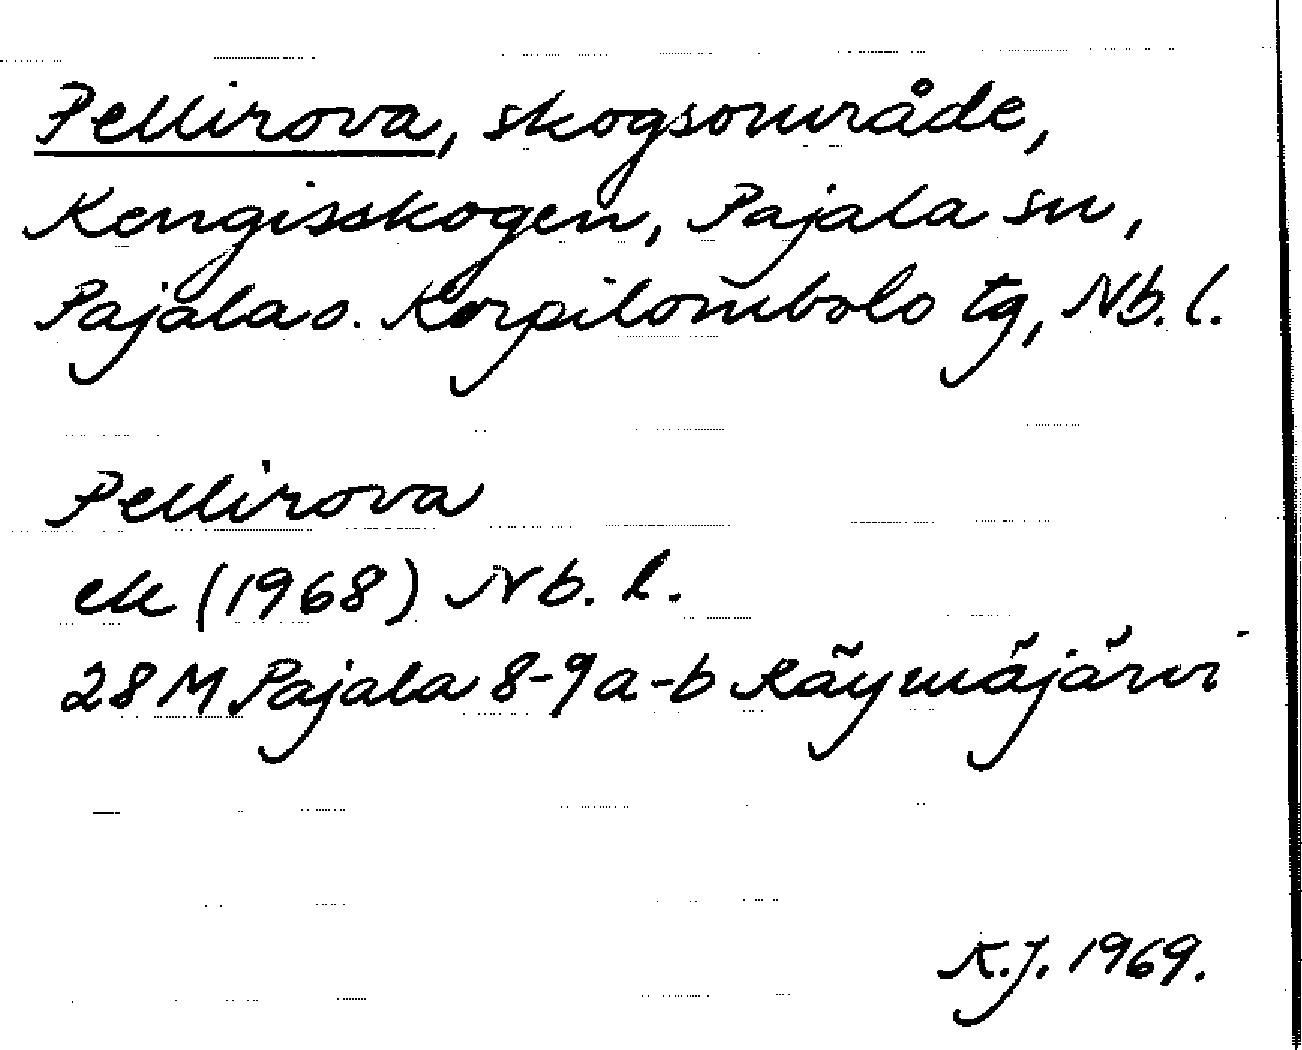 Pellirova, skogsområde,
Kengisskogen, Pajala sn,
Pajala o. Korpilombolo tg, Nb. l.
Pellirova
ek (1968) Nb. l.
28 M Pajala 8-9 a-b Käymäjärvi
K.J. 1969.